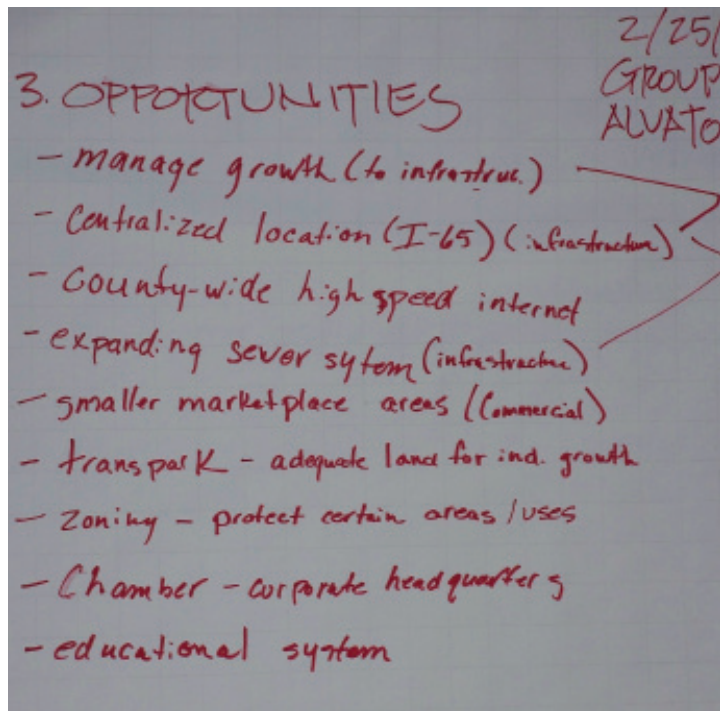 2/25/
GROUP
ALVATO
3. OPPORTUNITIES
- manage growth (to infrastruc.)
- Centralized location (I-65) (infrastructure)
- County-wide high speed internet
- expanding sewer sytem (infrastructure)
- smaller marketplace areas (Commercial)
- transpark - adequate land for ind. growth
- zoning - protect certain areas / uses
- Chamber - corporate headquarters
- educational system